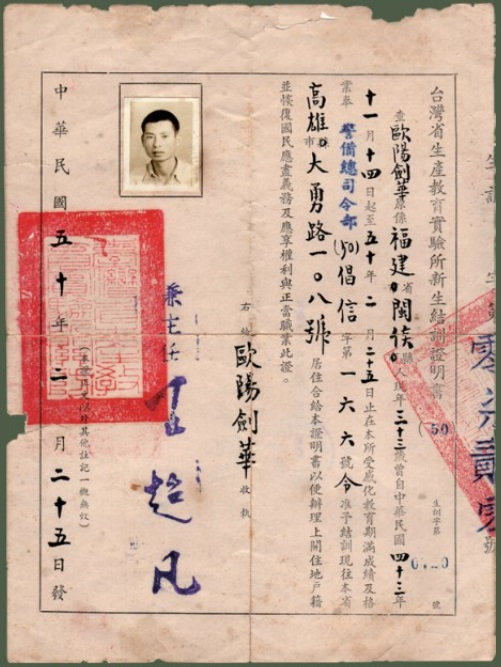 台灣省生產教育實驗所新生結訓證明書
(50)
生訓字第
0620
號
零六貳零
號
查歐陽劍華原係福建省閩侯縣人現年三十三歲曾自中華民國四十三年
十一月十四日起至五十年二月二十五日止在本所受感化教育期滿成績及格
業奉警備總司令部(50)倡信字第一六六號令准予結訓現往本省
高雄縣市大勇路一〇八號居住合給本證明書以便辦理上開住地戶籍
並恢復國民應盡義務及應享權利與正當職業此證。
右給歐陽劍華收執
兼主任
超凡
(本證塗改以其他註記一概無效)
中華民國五十年二月二十五日發